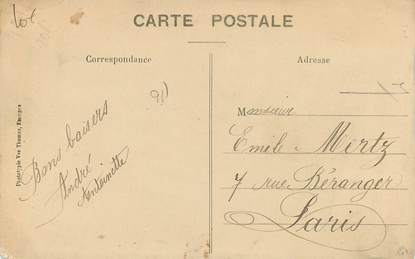 CARTE POSTALE
Correspondance
Adresse
Bons baisers
André
Antoinette
Monsieur
Emile Mertz
7 rue Béranger
Paris
Phototypie Vve Thomas, Etampes